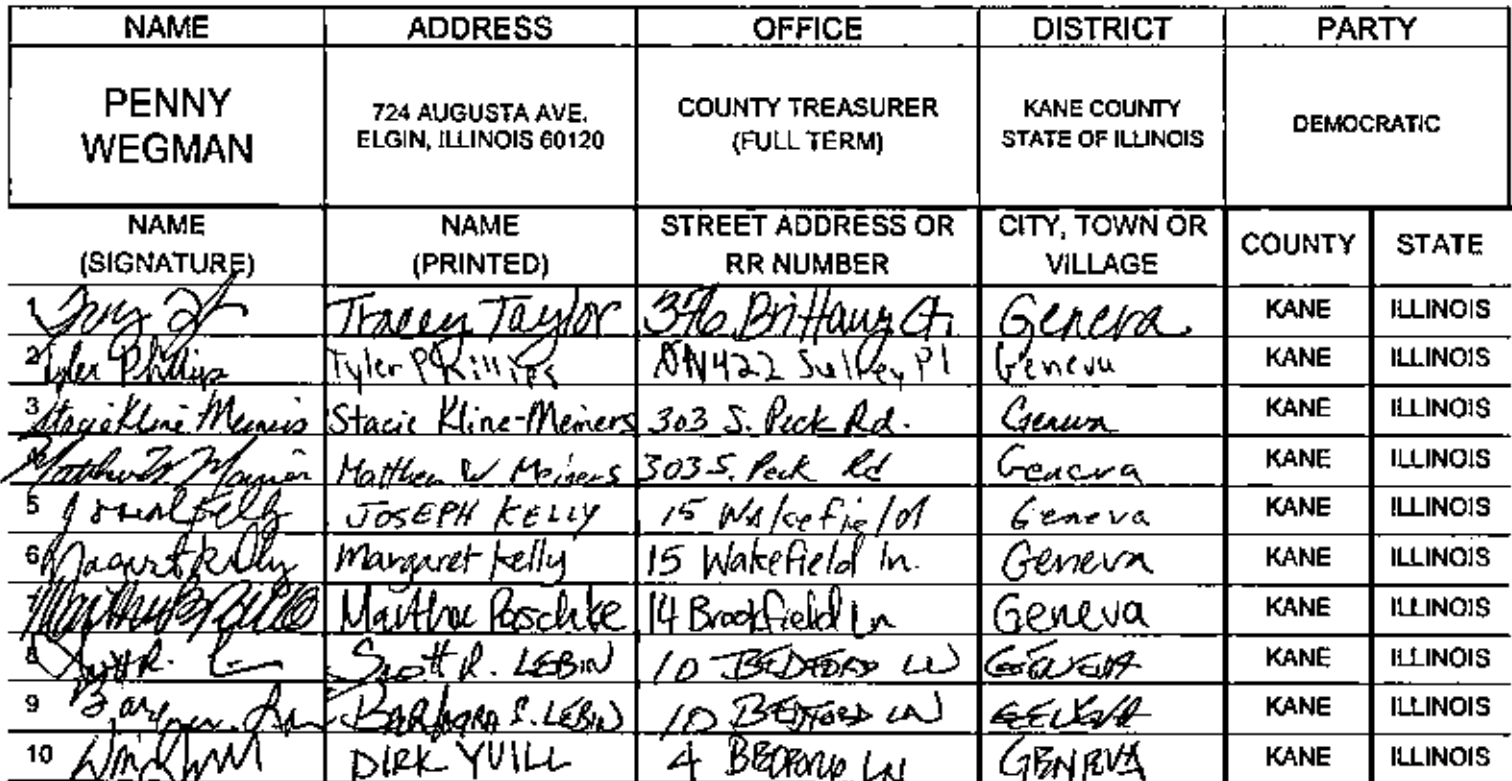 NAME ADDRESS OFFICE DISTRICT PARTY
PENNY WEGMAN 724 AUGUSTA AVE. ELGIN, ILLINOIS 60120 COUNTY TREASURER (FULL TERM) KANE COUNTY STATE OF ILLINOIS DEMOCRATIC
NAME (SIGNATURE) NAME (PRINTED) STREET ADDRESS OR RR NUMBER CITY, TOWN OR VILLAGE COUNTY STATE
1 Tracey Taylor 376 Brittany Ct. Geneva KANE ILLINOIS
2 Tyler Phillips Tyler Phillips Geneva KANE ILLINOIS
3 Stacie Kline-Meiners Stacie Kline-Meiners 303 S. Peck Rd. Geneva KANE ILLINOIS
4 Matthew W Meiners 303 S. Peck Rd Geneva KANE ILLINOIS
5 JOSEPH KELLY 15 Wakefield Geneva KANE ILLINOIS
6 Margaret Kelly Margaret Kelly 15 Wakefield ln. Geneva KANE ILLINOIS
7 Paschke 14 Brookfield Ln Geneva KANE ILLINOIS
8 Scott R. LEBIN 10 BEDFORD LN GENEVA KANE ILLINOIS
9 BARBARA S. LEBIN 10 BEDFORD LN GENEVA KANE ILLINOIS
10 DIRK YUILL 4 BEDFORD LN GENEVA KANE ILLINOIS